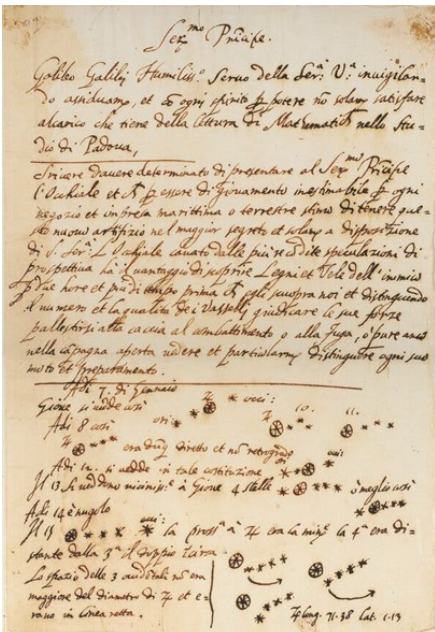 Ser.mo Prĩcipe.
Galileo Galilej Humiliss.o Servo della Ser.a V.a invigilan-
do assiduam.e, et cõ ogni spirito p potere nõ solam satisfare
alcarico che tiene della lettura di Mathematich nello Stu-
dio di Padova,
Scrivere davere determinato di presentare al Ser.mo Prĩcipe
l'Occhiale et p essere di giovamento inestimabile p ogni
negozio et impresa marittima o terrestre stimo di tenere que-
sto nuovo artifizio nel maggior segreto et solam a disposizione
di S. Ser.a L'Occhiale cavato dalle più recõdite speculazioni di
prospettiva ha il vantaggio di scoprire Legni et Vele dell' inimico
p due hore et più di tempo prima egli scuopra noi et distinguendo
il numero et la qualità de i Vasselli giudicare le sue forze
pallestirsi alla caccia al combattimento o alla fuga, o pure anco
nella cãpagna aperta vedere et particularm distinguere ogni suo
moto et preparamento.
Adì 7. di Gennaio
Giove si vedde così
Adì 8 così 10. 11.
era dũq diretto et nõ retrogrado
Adì 12. si vedde in tale costituzione
Il 13 si veddono viciniss.e à Giove 4 stelle ò meglio così
Adì 14 è nugolo
Il 15 la pross.a à ♃ era la min.e la 4.a era di-
stante dalla 3.a il doppio
Lo spazio delle 3 nõ era
maggiore del diametro di ♃ et e-
rano in linea retta.
♃ long. 71.38 lat. 1.13